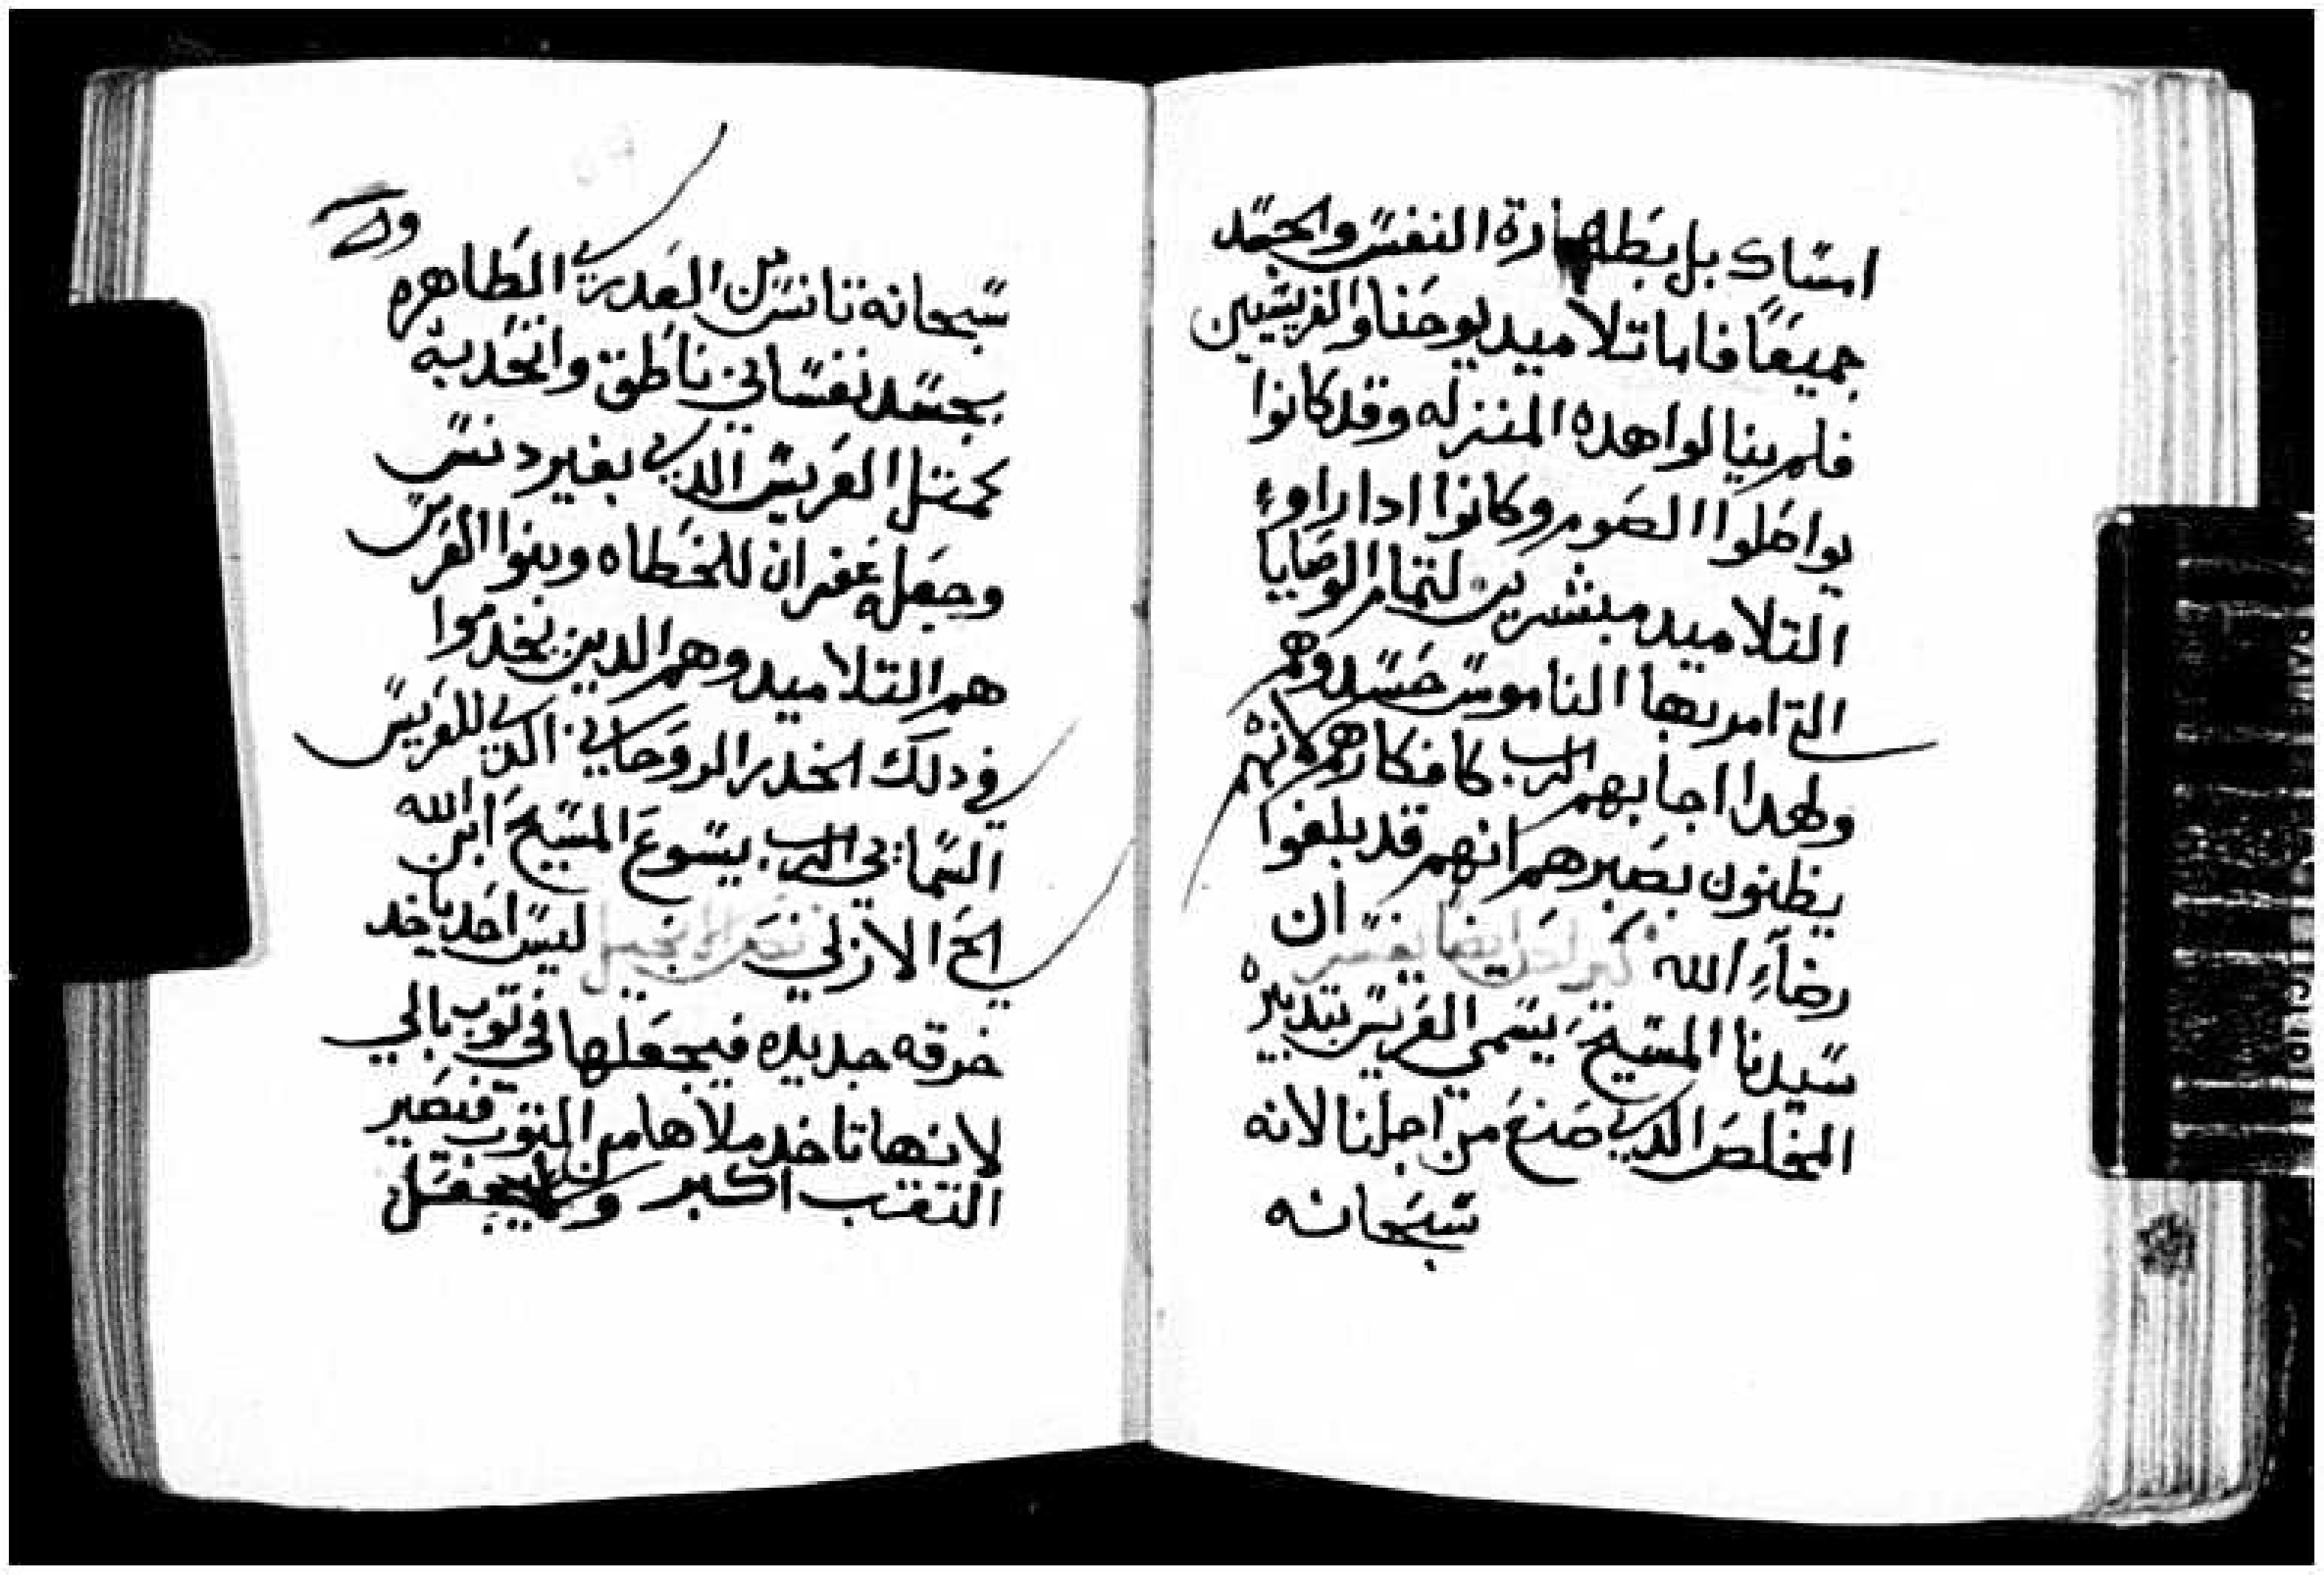 امساك بل بطهارة النفس والجسد
جميعًا فاما تلاميد يوحنا والفريسيين
فلم ينالوا هده المنزله وقد كانوا
يواصلوا الصوم وكانوا ادا راوء
التلاميد مبشرين لتمام الوصايا
التي امر بها الناموس حسدوهم
ولهدا اجابهم الرب كافكارهم لانهم
يظنون بصبرهم انهم قد بلغوا
رضاء الله ايضا يفسر ان
سيدنا المسيح يسمي العريس بتدبيره
المخلص الدي صنع من اجلنا لانه
سبحانه
سبحانه تانس من العدري الطاهره
بجسد نفساني ناطق واتحد به
كمتل العريس الدي بغير دنس
وجعله غفران للخطاه وبنوا العرس
هم التلاميد وهم الدين يخدموا
في دلك الخدر الروحاني الدي للعريس
السمائي الرب يسوع المسيح ابن الله
الحي الازلي نص الانجيل ليس احد ياخد
خرقه جديده فيجعلها في توب بالي
لانها تاخد ملاها من التوب فتصير
التقب اكبر وليس يجعل